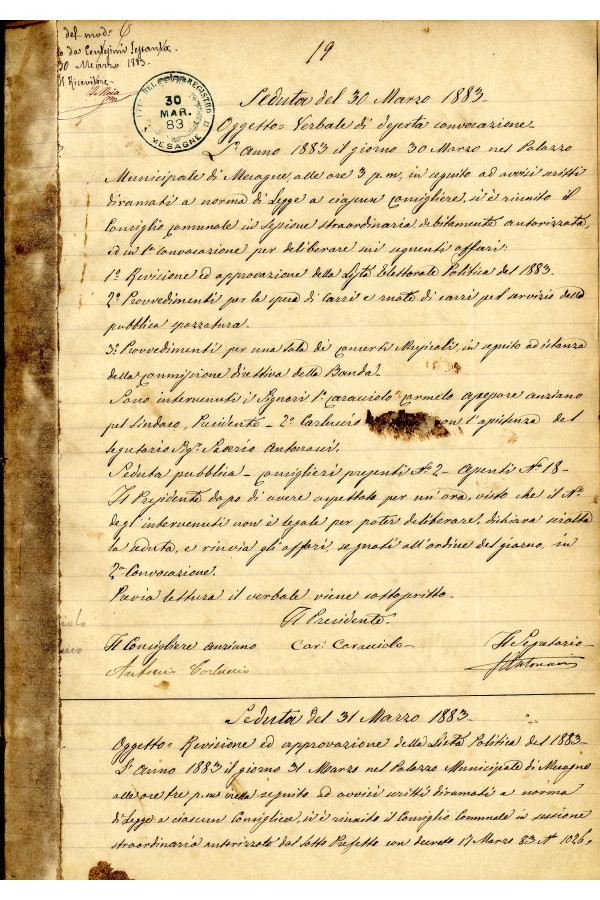 del mod° 6
da Centesimi Sessanta
30 Marzo 1883.
Il Ricevitore
19
REGISTRO
30
MAR.
83
MESAGNE
Seduta del 30 Marzo 1883
Oggetto = Verbale di deserta convocazione.
L'anno 1883 il giorno 30 Marzo nel Palazzo
Municipale di Mesagne, alle ore 3 p.m, in seguito ad avvisi scritti
diramati a norma di Legge a ciascun Consigliere, si è riunito il
Consiglio Comunale in Sessione straordinaria, debitamente autorizzata,
ed in 1ª Convocazione per deliberare sui seguenti affari:
1° Revisione ed approvazione della Lista Elettorale Politica del 1883.
2° Provvedimenti per la spesa di Carri e ruote di carri pel servizio della
pubblica spazzatura.
3° Provvedimenti per una sala dei concerti Musicali, in seguito ad istanza
della Commissione direttiva della Banda.
Sono intervenuti i Signori 1° Caracciolo Carmelo assessore anziano
pel Sindaco, Presidente - 2° Carluccio con l'assistenza del
Segretario Sigr. Saverio Antonucci.
Seduta pubblica - Consiglieri presenti N° 2 - Assenti N° 18 -
Il Presidente dopo di avere aspettato per un'ora, visto che il N°
degl'intervenuti non è legale per poter deliberare, dichiara sciolta
la seduta, e rinvia gli affari, segnati all'ordine del giorno, in
2ª Convocazione.
Previa lettura il verbale viene sottoscritto.
Il Presidente
Il Consigliere anziano Car. Caracciolo Il Segretario
Antonio Carluccio SAntonucci
Seduta del 31 Marzo 1883
Oggetto = Revisione ed approvazione della Lista Politica del 1883
L'Anno 1883 il giorno 31 Marzo nel Palazzo Municipale di Mesagne
alle ore tre p.m. seguito ad avvisi scritti diramati a norma
di Legge a ciascun Consigliere, si è riunito il Consiglio Comunale in sessione
straordinaria autorizzata dal Sotto Prefetto con decreto 17 Marzo 83 N° 1026.